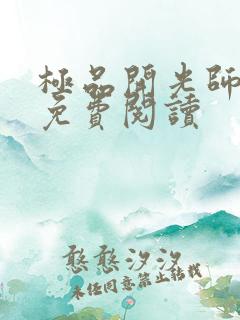 極品開光師
免費閱讀
憨憨汐汐
未经同意禁止転载